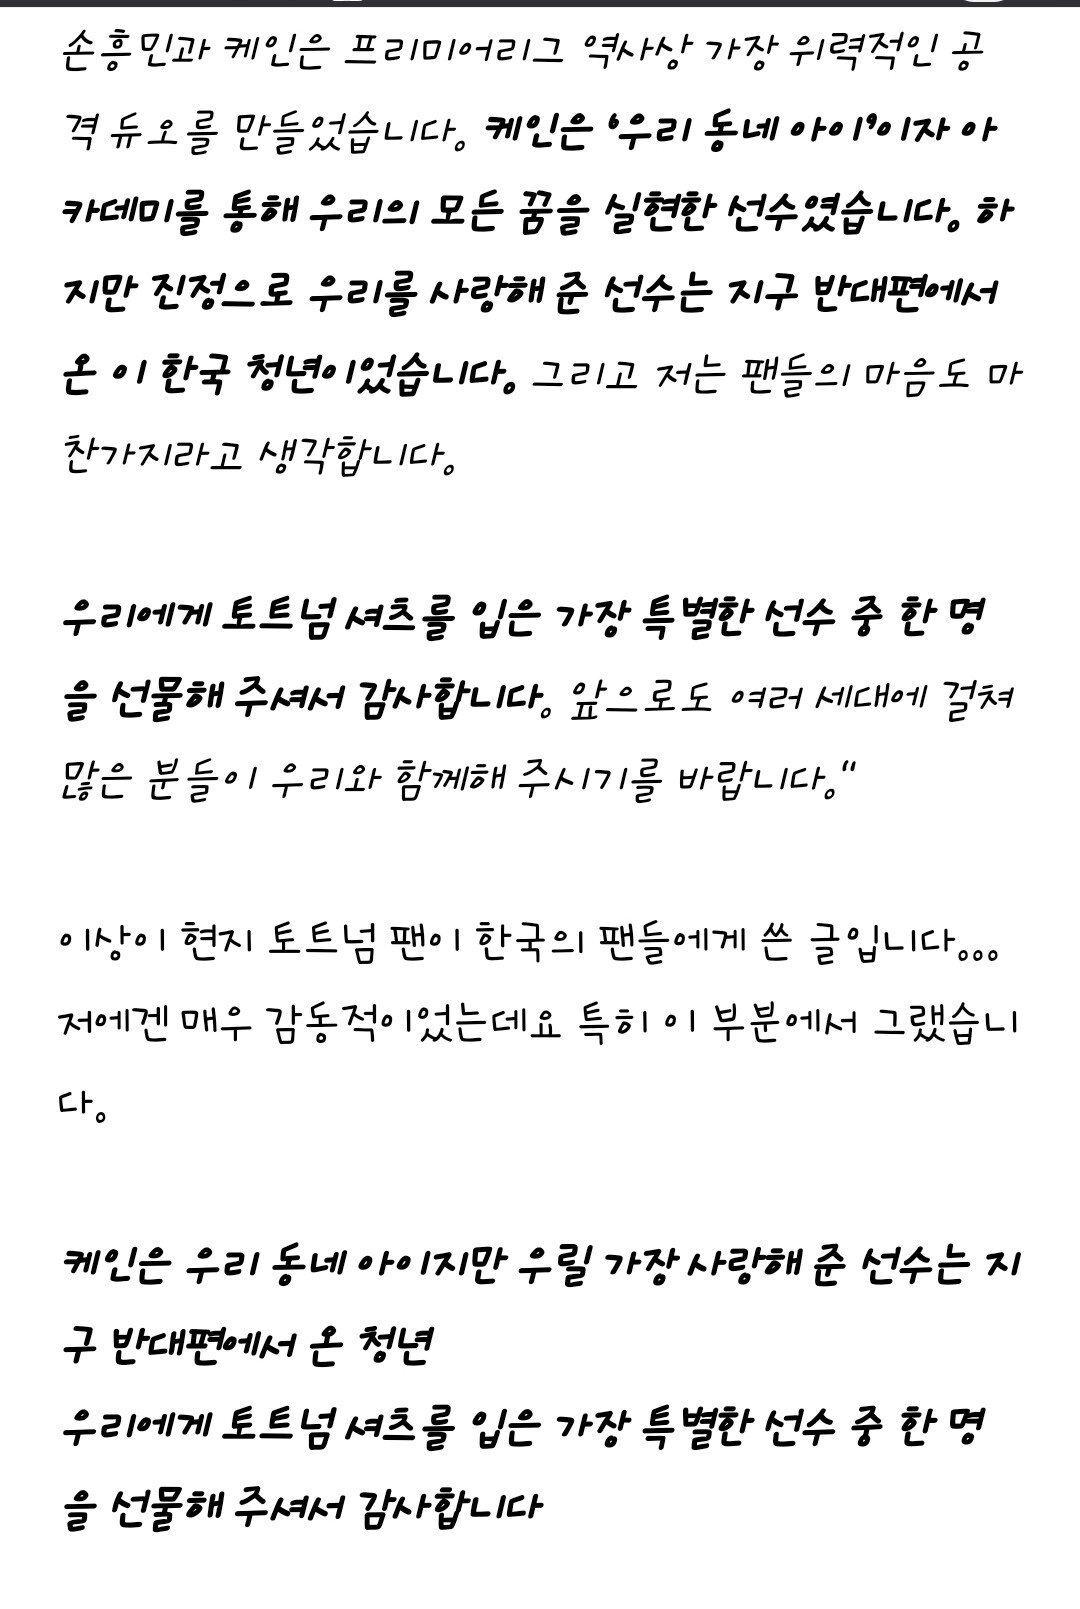 손흥민과 케인은 프리미어리그 역사상 가장 위력적인 공
격 듀오를 만들었습니다. 케인은 ‘우리 동네 아이’이자 아
카데미를 통해 우리의 모든 꿈을 실현한 선수였습니다. 하
지만 진정으로 우리를 사랑해 준 선수는 지구 반대편에서
온 이 한국 청년이었습니다. 그리고 저는 팬들의 마음도 마
찬가지라고 생각합니다.
우리에게 토트넘 셔츠를 입은 가장 특별한 선수 중 한 명
을 선물해 주셔서 감사합니다. 앞으로도 여러 세대에 걸쳐
많은 분들이 우리와 함께해 주시기를 바랍니다.“
이상이 현지 토트넘 팬이 한국의 팬들에게 쓴 글입니다...
저에겐 매우 감동적이었는데요 특히 이 부분에서 그랬습니
다.
케인은 우리 동네 아이지만 우릴 가장 사랑해 준 선수는 지
구 반대편에서 온 청년
우리에게 토트넘 셔츠를 입은 가장 특별한 선수 중 한 명
을 선물해 주셔서 감사합니다